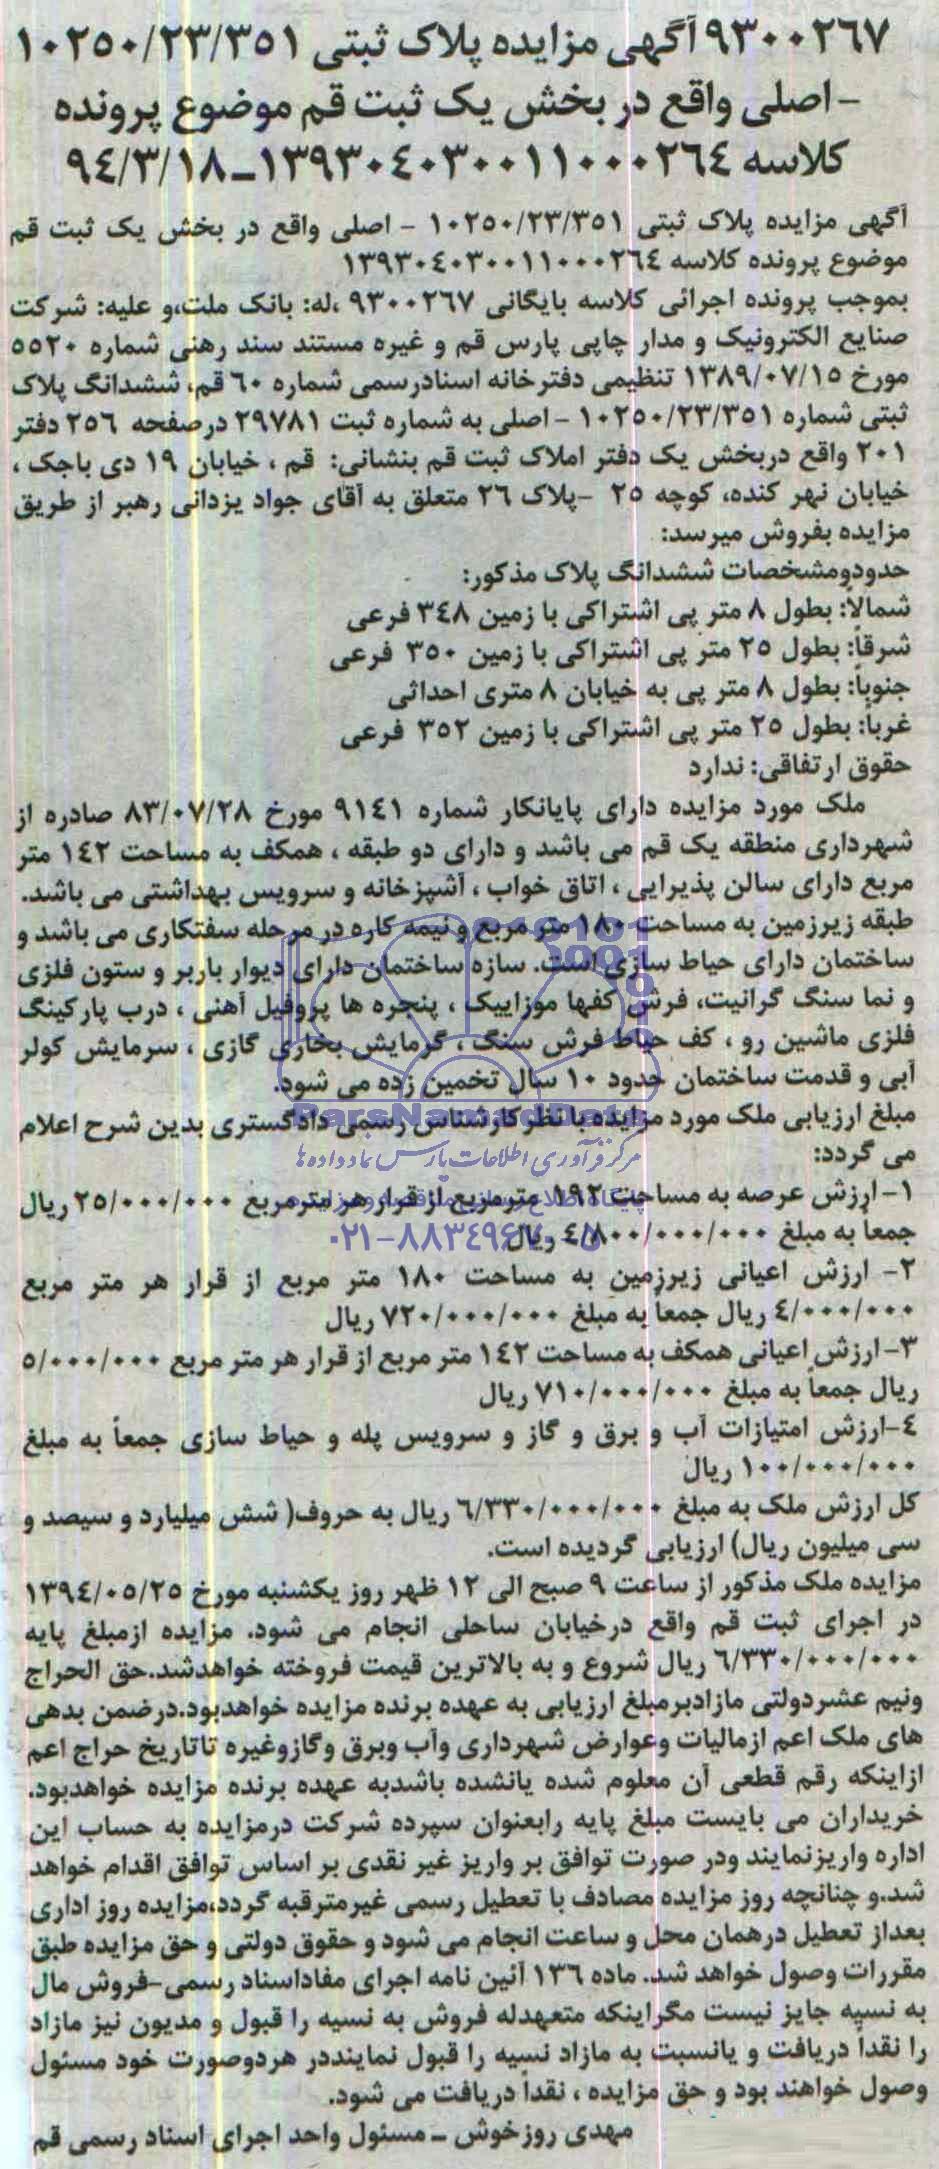 ۹۳۰۰۲۶۷ آگهی مزایده پلاک ثبتی ۱۰۲۵۰/۲۳/۳۵۱
- اصلی واقع در بخش یک ثبت قم موضوع پرونده
کلاسه ۱۳۹۳۰۴۰۳۰۰۱۱۰۰۰۲۶۴ـ۹۴/۳/۱۸
آگهی مزایده پلاک ثبتی ۱۰۲۵۰/۲۳/۳۵۱ - اصلی واقع در بخش یک ثبت قم
موضوع پرونده کلاسه ۱۳۹۳۰۴۰۳۰۰۱۱۰۰۰۲۶۴
بموجب پرونده اجرائی کلاسه بایگانی ۹۳۰۰۲۶۷ ،له: بانک ملت،و علیه: شرکت
صنایع الکترونیک و مدار چاپی پارس قم و غیره مستند سند رهنی شماره ۵۵۲۰
مورخ ۱۳۸۹/۰۷/۱۵ تنظیمی دفترخانه اسنادرسمی شماره ۶۰ قم، ششدانگ پلاک
ثبتی شماره ۱۰۲۵۰/۲۳/۳۵۱ - اصلی به شماره ثبت ۲۹۷۸۱ درصفحه ۲۵۶ دفتر
۲۰۱ واقع دربخش یک دفتر املاک ثبت قم بنشانی: قم ، خیابان ۱۹ دی باجک ،
خیابان نهر کنده، کوچه ۲۵ -پلاک ۲۶ متعلق به آقای جواد یزدانی رهبر از طریق
مزایده بفروش میرسد:
حدودومشخصات ششدانگ پلاک مذکور:
شمالاً: بطول ۸ متر پی اشتراکی با زمین ۳۴۸ فرعی
شرقاً: بطول ۲۵ متر پی اشتراکی با زمین ۳۵۰ فرعی
جنوباً: بطول ۸ متر پی به خیابان ۸ متری احداثی
غرباً: بطول ۲۵ متر پی اشتراکی با زمین ۳۵۲ فرعی
حقوق ارتفاقی: ندارد
ملک مورد مزایده دارای پایانکار شماره ۹۱۴۱ مورخ ۸۳/۰۷/۲۸ صادره از
شهرداری منطقه یک قم می باشد و دارای دو طبقه ، همکف به مساحت ۱۴۲ متر
مربع دارای سالن پذیرایی ، اتاق خواب ، آشپزخانه و سرویس بهداشتی می باشد.
طبقه زیرزمین به مساحت ۱۸۰ متر مربع و نیمه کاره در مرحله سفتکاری می باشد و
ساختمان دارای حیاط سازی است. سازه ساختمان دارای دیوار باربر و ستون فلزی
و نما سنگ گرانیت، فرش کفها موزاییک ، پنجره ها پروفیل آهنی ، درب پارکینگ
فلزی ماشین رو ، کف حیاط فرش سنگ ، گرمایش بخاری گازی ، سرمایش کولر
آبی و قدمت ساختمان حدود ۱۰ سال تخمین زده می شود.
ParsNamadData
مبلغ ارزیابی ملک مورد مزایده با نظر کارشناس رسمی دادگستری بدین شرح اعلام
مرکز فرآوری اطلاعات پارس نماد داده ها
می گردد:
۱- ارزش عرصه به مساحت ۱۹۲ مترمربع از قرار هر مترمربع ۲۵/۰۰۰/۰۰۰ ریال
جمعاً به مبلغ ۴/۸۰۰/۰۰۰/۰۰۰ ریال
۰۲۱-۸۸۳۴۹۶۷۰-۵
۲- ارزش اعیانی زیرزمین به مساحت ۱۸۰ متر مربع از قرار هر متر مربع
۴/۰۰۰/۰۰۰ ریال جمعاً به مبلغ ۷۲۰/۰۰۰/۰۰۰ ریال
۳- ارزش اعیانی همکف به مساحت ۱۴۲ متر مربع از قرار هر متر مربع ۵/۰۰۰/۰۰۰
ریال جمعاً به مبلغ ۷۱۰/۰۰۰/۰۰۰ ریال
۴-ارزش امتیازات آب و برق و گاز و سرویس پله و حیاط سازی جمعاً به مبلغ
۱۰۰/۰۰۰/۰۰۰ ریال
کل ارزش ملک به مبلغ ۶/۳۳۰/۰۰۰/۰۰۰ ریال به حروف( شش میلیارد و سیصد و
سی میلیون ریال) ارزیابی گردیده است.
مزایده ملک مذکور از ساعت ۹ صبح الی ۱۲ ظهر روز یکشنبه مورخ ۱۳۹۴/۰۵/۲۵
در اجرای ثبت قم واقع درخیابان ساحلی انجام می شود. مزایده ازمبلغ پایه
۶/۳۳۰/۰۰۰/۰۰۰ ریال شروع و به بالاترین قیمت فروخته خواهدشد.حق الحراج
ونیم عشردولتی مازادبرمبلغ ارزیابی به عهده برنده مزایده خواهدبود.درضمن بدهی
های ملک اعم ازمالیات وعوارض شهرداری وآب وبرق وگازوغیره تاتاریخ حراج اعم
ازاینکه رقم قطعی آن معلوم شده یانشده باشدبه عهده برنده مزایده خواهدبود.
خریداران می بایست مبلغ پایه رابعنوان سپرده شرکت درمزایده به حساب این
اداره واریزنمایند ودر صورت توافق بر واریز غیر نقدی بر اساس توافق اقدام خواهد
شد.و چنانچه روز مزایده مصادف با تعطیل رسمی غیرمترقبه گردد،مزایده روز اداری
بعداز تعطیل درهمان محل و ساعت انجام می شود و حقوق دولتی و حق مزایده طبق
مقررات وصول خواهد شد. ماده ۱۳۶ آئین نامه اجرای مفاداسناد رسمی-فروش مال
به نسیه جایز نیست مگراینکه متعهدله فروش به نسیه را قبول و مدیون نیز مازاد
را نقداً دریافت و یانسبت به مازاد نسیه را قبول نماینددر هردوصورت خود مسئول
وصول خواهند بود و حق مزایده ، نقداً دریافت می شود.
مهدی روزخوش ـ مسئول واحد اجرای اسناد رسمی قم